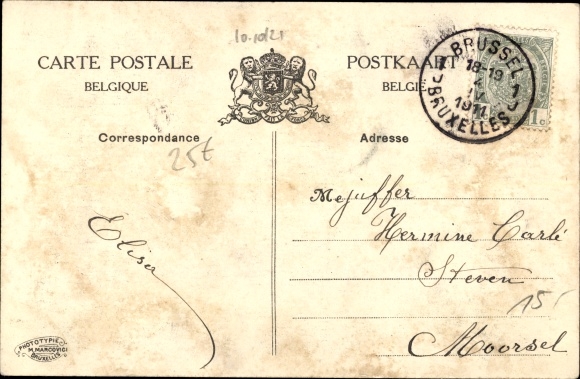 10.10/21
CARTE POSTALE
BELGIQUE
POSTKAART
BELGI
BRUSSEL 1
18-19
1911
BRUXELLES
1c
Correspondance
Adresse
25€
Elisa
Mejuffer
Hermine Carlé
Steven
15
Moorsel
PHOTOTYPIE
M. MARCOVICI
BRUXELLES